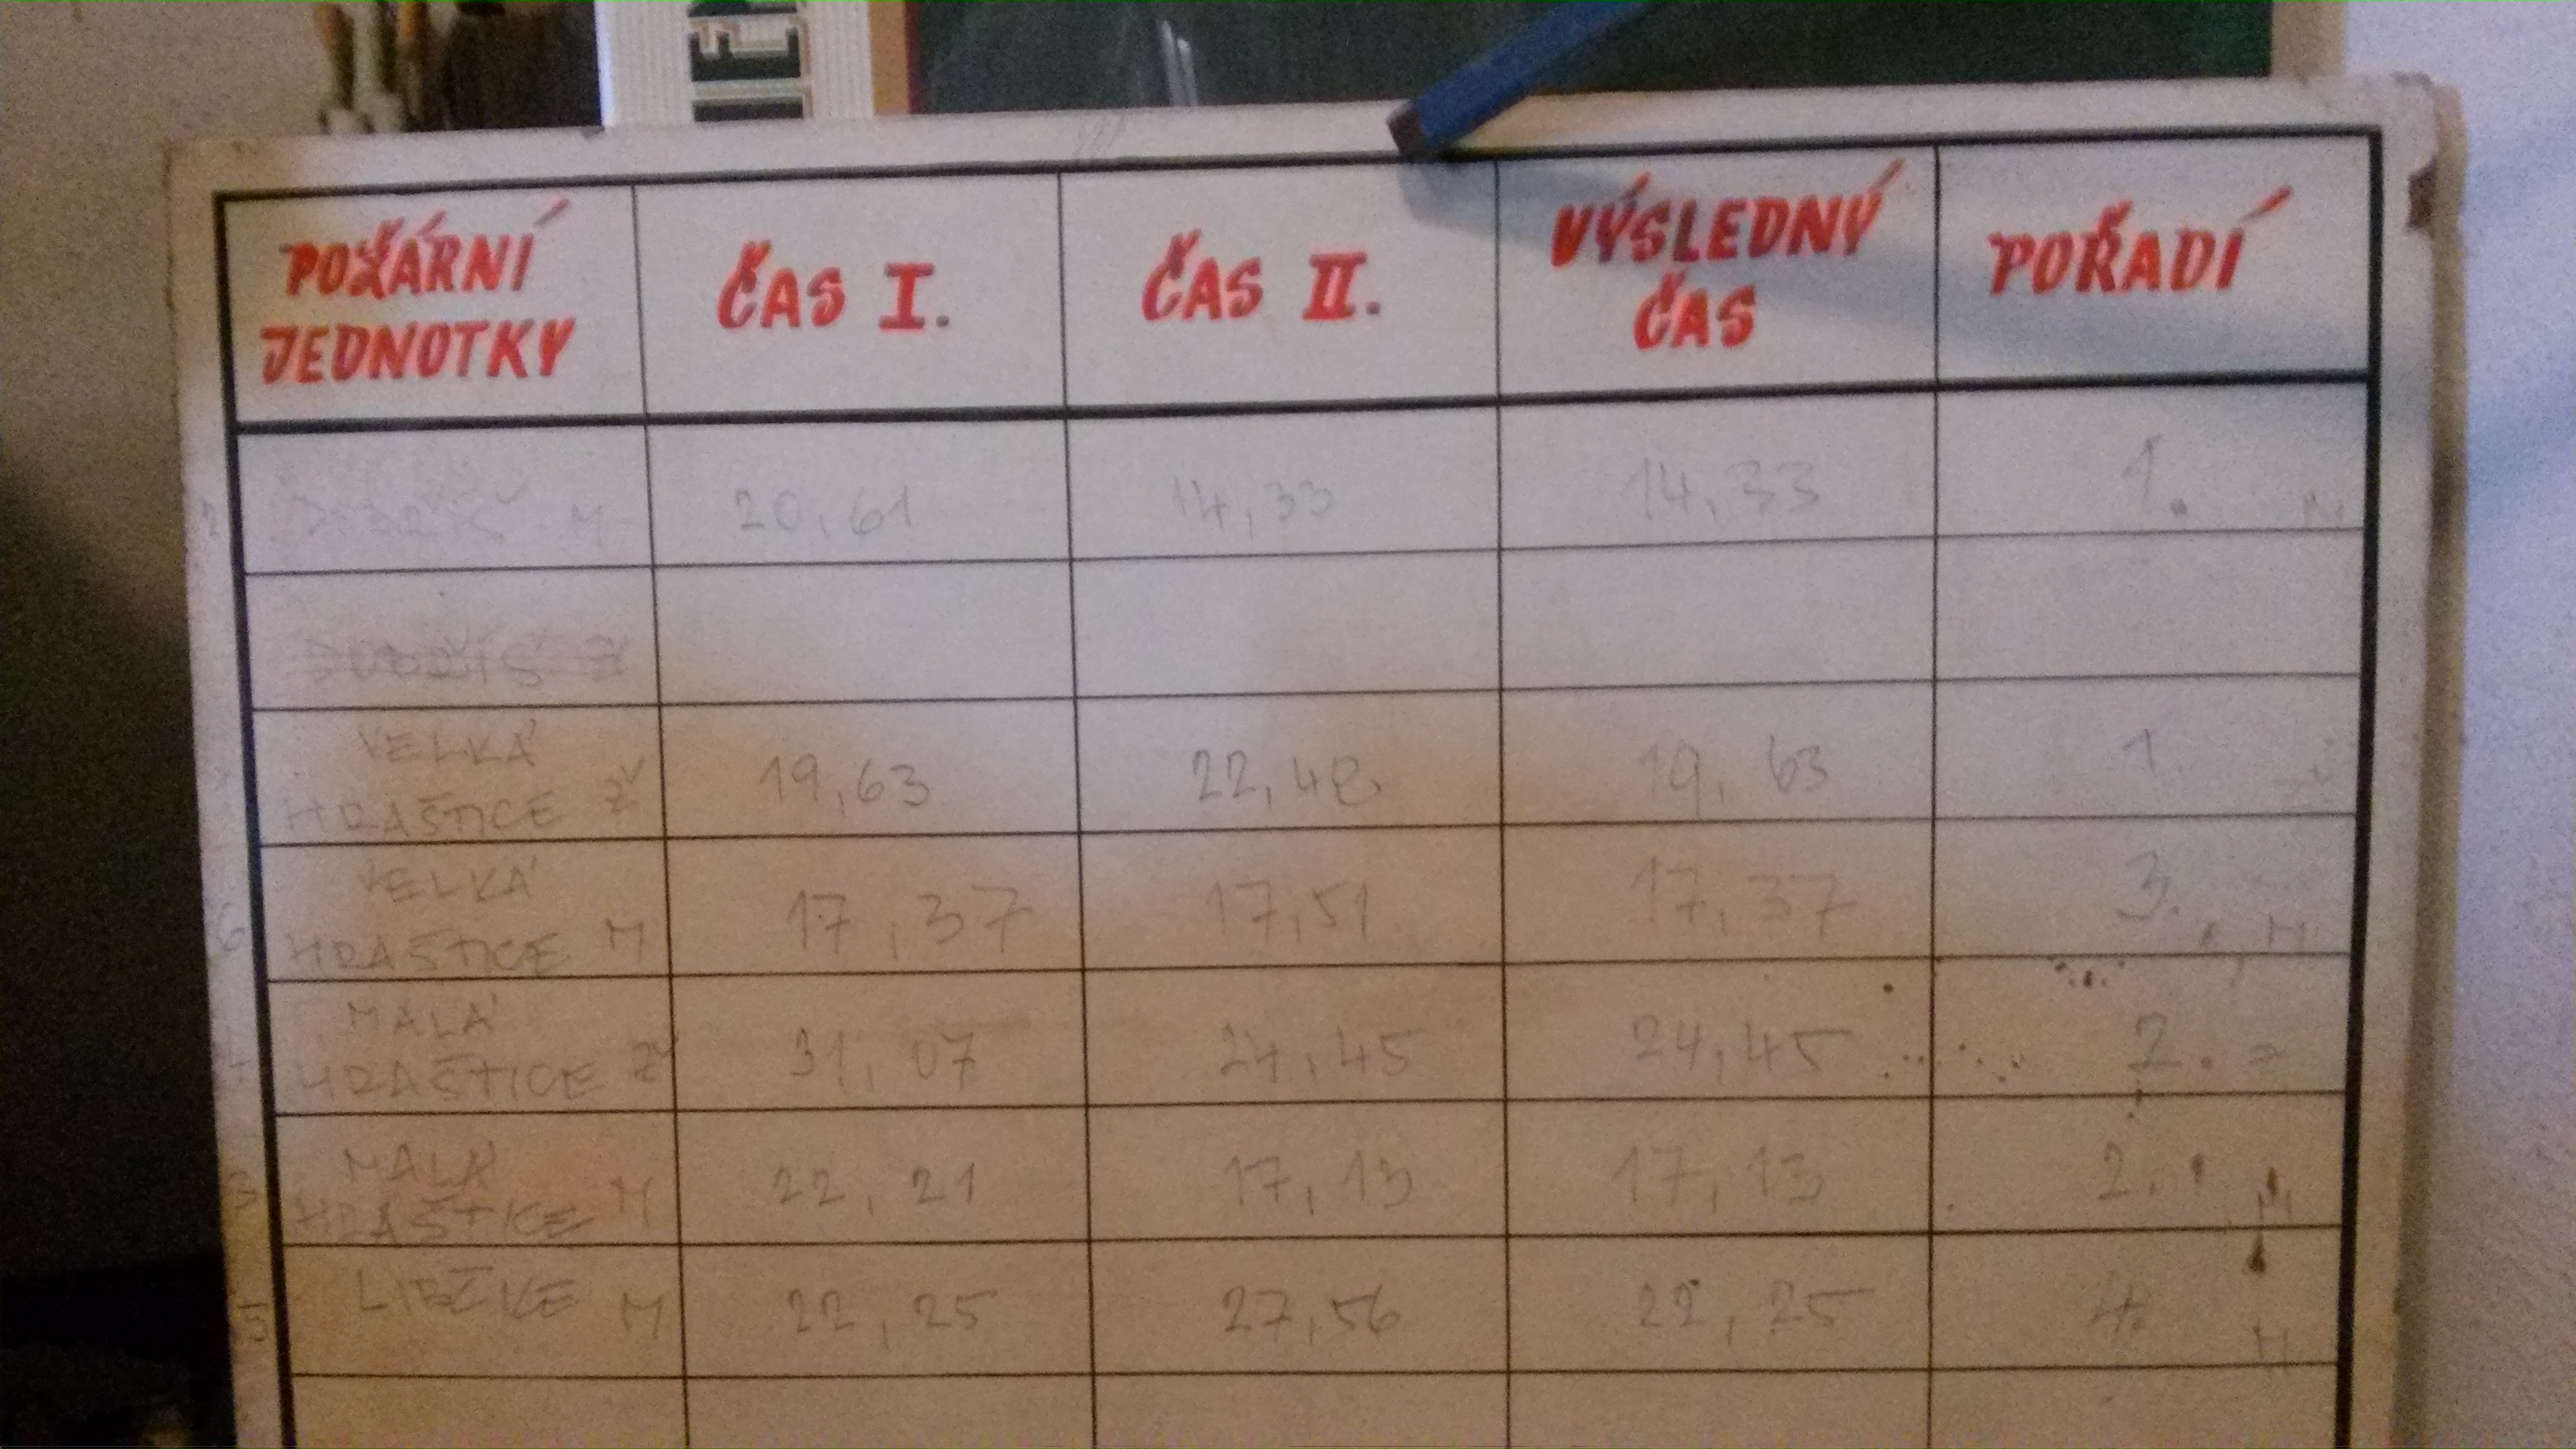 POŽÁRNÍ
JEDNOTKY
ČAS I.
ČAS II.
VÝSLEDNÝ
ČAS
POŘADÍ
M 20,61 14,33 14,33 1. M
VELKÁ
HRAŠTICE Ž 19,63 22,42 19,63 1. Ž
VELKÁ
6 HRAŠTICE M 17,37 17,51 17,37 3. M
MALÁ
HRAŠTICE Ž 31,07 24,45 24,45 2.
MALÁ
3 HRAŠTICE M 22,21 17,13 17,13 2. M
5 LIBČICE M 22,25 27,56 22,25 4. M